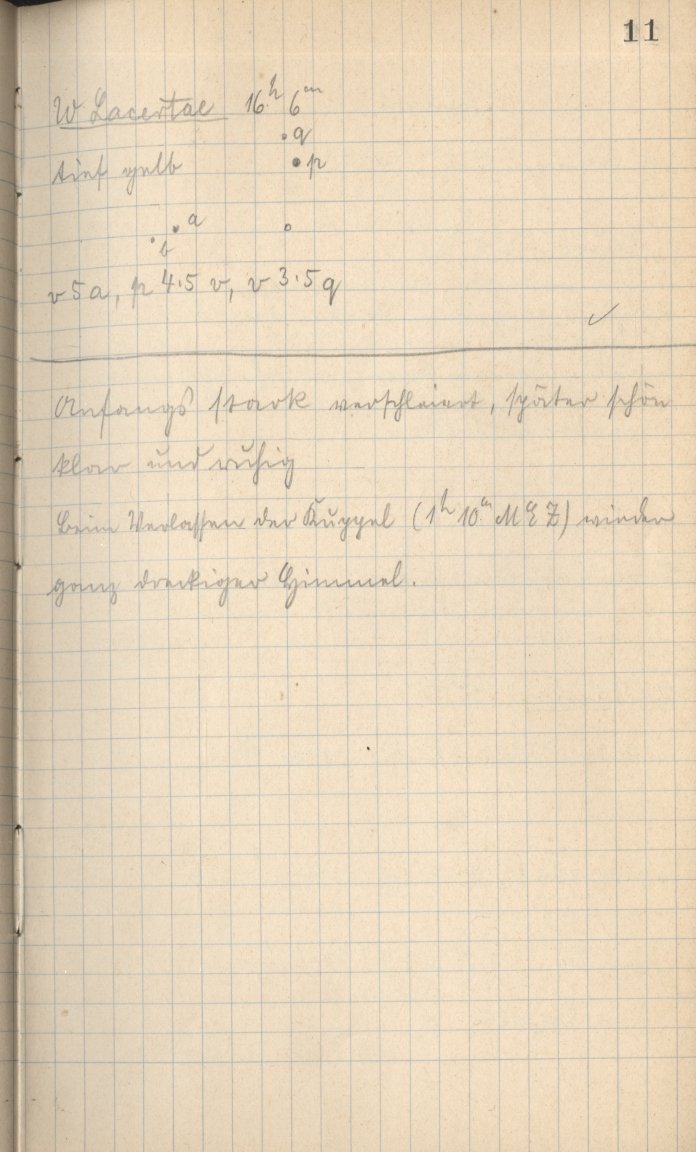 11
W Lacertae 16h 6m
q
tief gelb p
a
b
v 5 a, p 4.5 v, v 3.5 q
✓
Anfangs stark verschleiert, später schön
klar und ruhig
Beim Verlassen der Kuppel (1h 10m MEZ) wieder
ganz dreckiger Himmel.